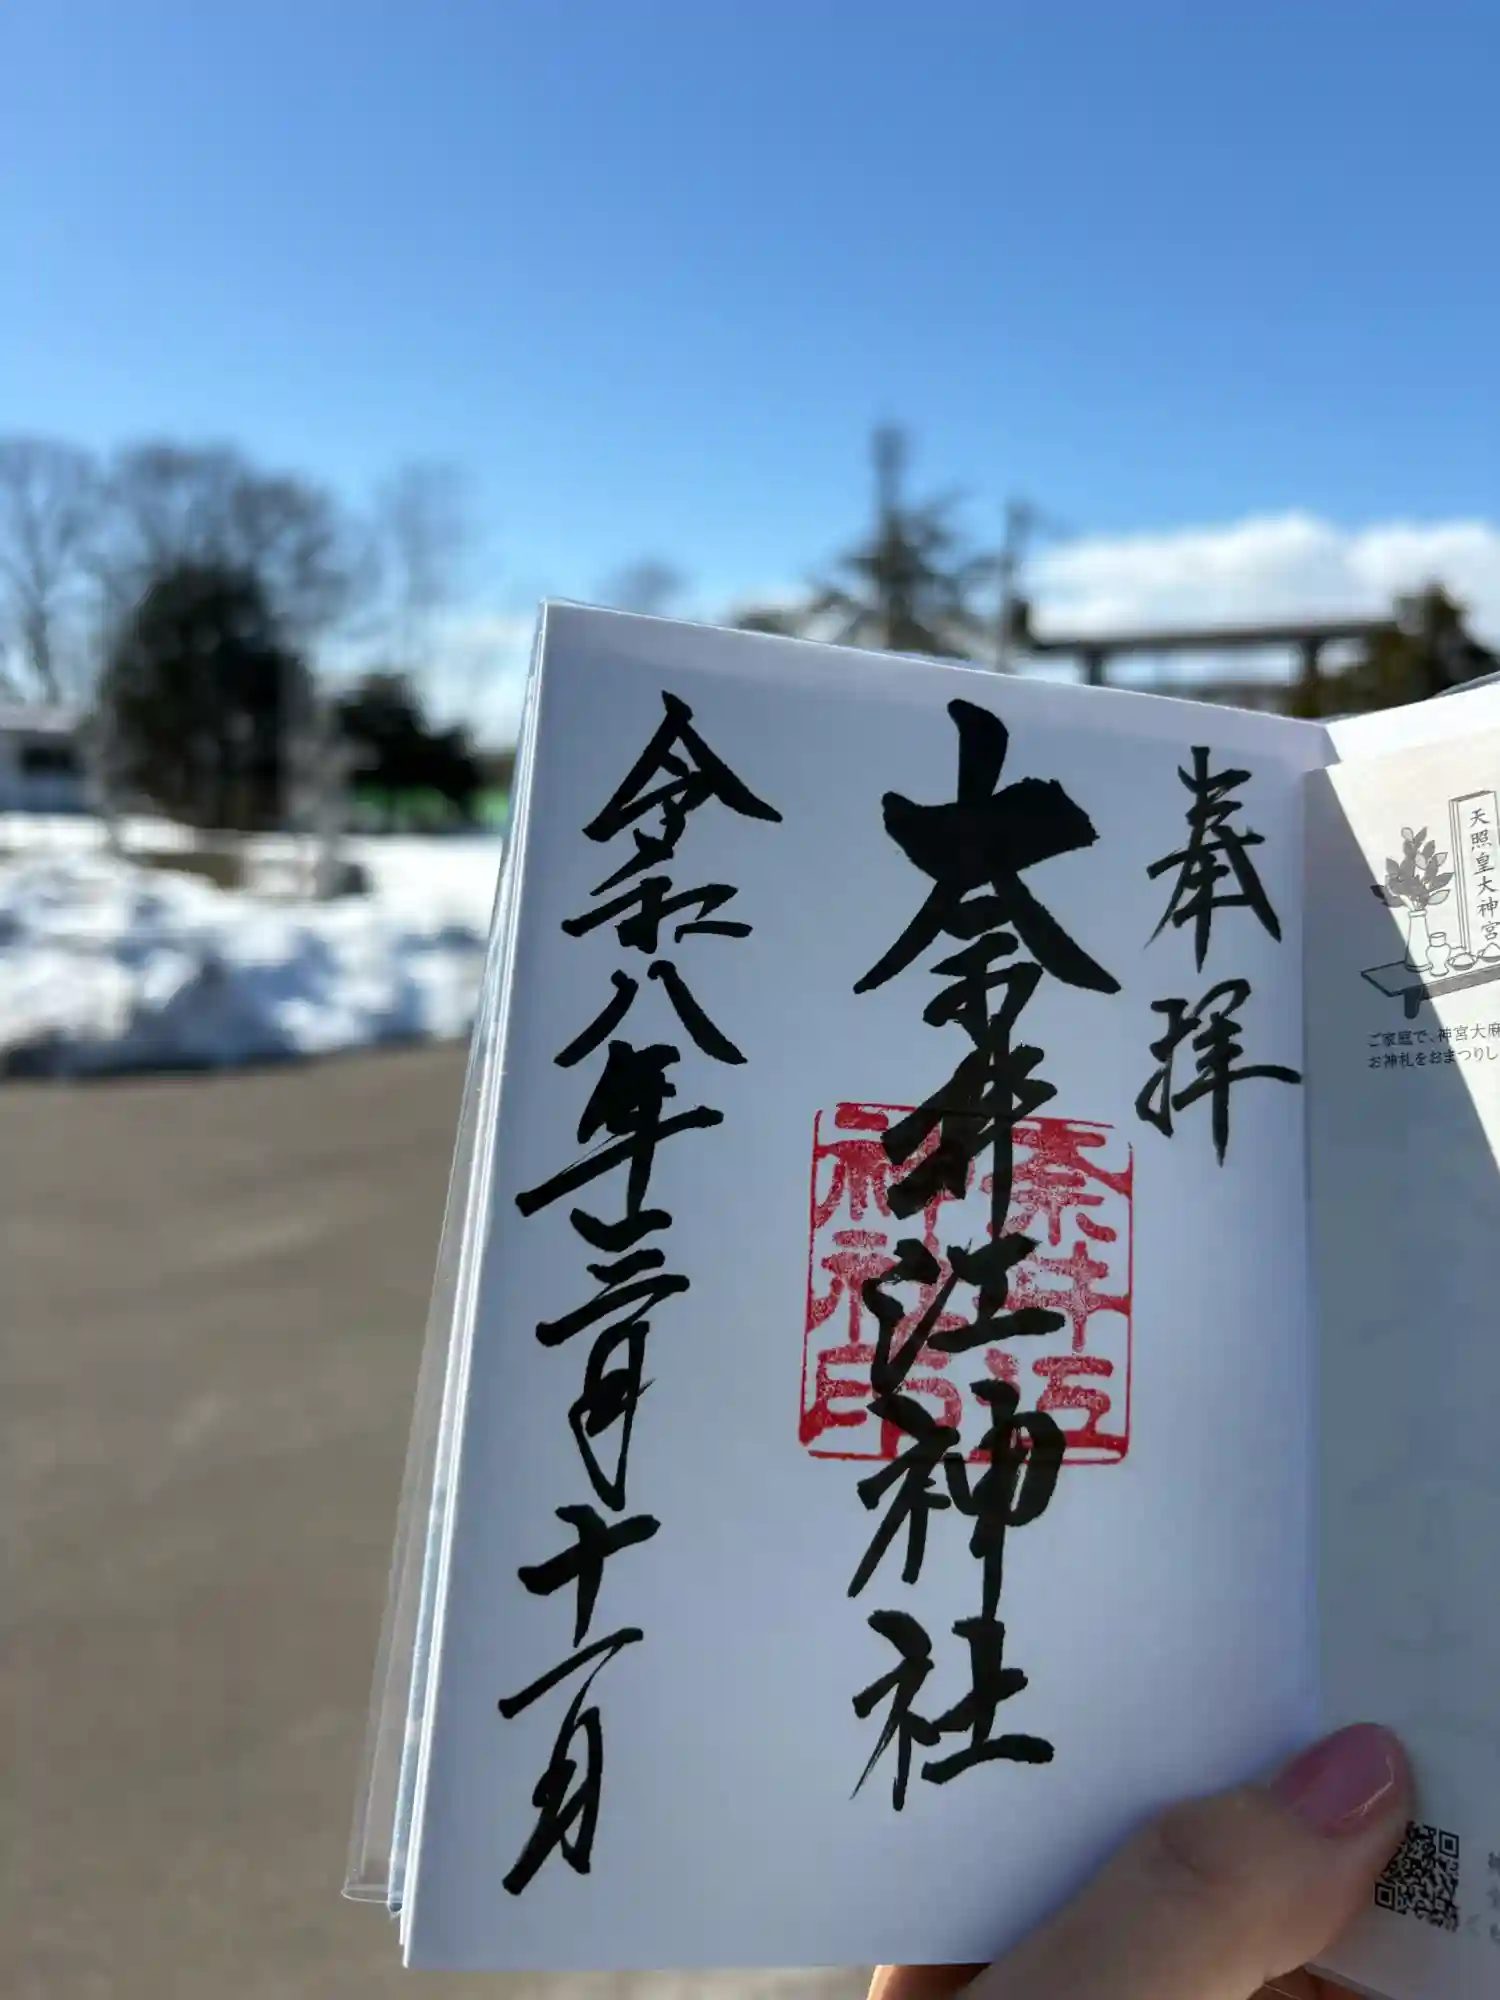 天照皇大神宮
ご家庭で、神宮大麻
お神札をおまつりし
奉拝
奈井江神社
奈井江
神社印
令和八年三月十一日